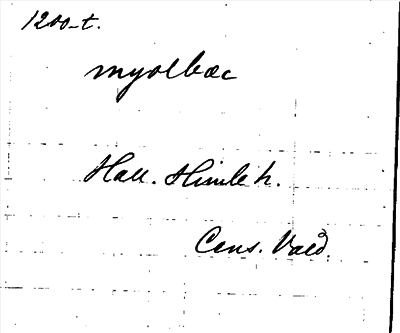 1200-t.
myolbæc
Hall. Himle h.
Cens. Vald.